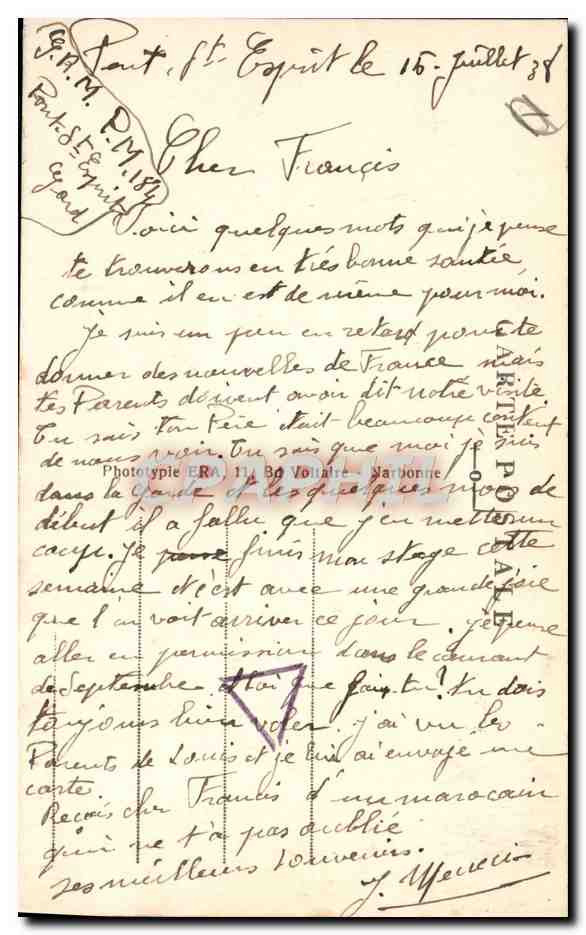 Pont. St. Esprit le 15. Juillet 38
G.R.M.
P.M. 184
Pont. St Esprit
Gard
Cher Francis
Voici quelques mots qui je pense
te trouverons en très bonne santée
comme il en est de même pour moi.
Je suis un peu en retard pour te
donner des nouvelles de France mais
tes Parents doivent avoir dit notre visite.
Tu sais ton Père était beaucoup content
de nous voir. Tu sais que moi je suis
dans la Garde et les quelques mois de
début il a fallu que j'en mette un
coup. Je finis mon stage cette
semaine et c'est avec une grande joie
que l'on voit arriver ce jour. Je pense
aller en permission dans le courant
de Septembre. et toi que fais-tu? tu dois
toujours bien voler. J'ai vu les
Parents de Louis et je lui ai envoyé une
carte.
Reçois cher Francis d'un marocain
qui ne t'a pas oublié
ses meilleurs souvenirs.
CARTE POSTALE
Phototypie ERA, 11, Bd Voltaire - Narbonne
CPAPHIL